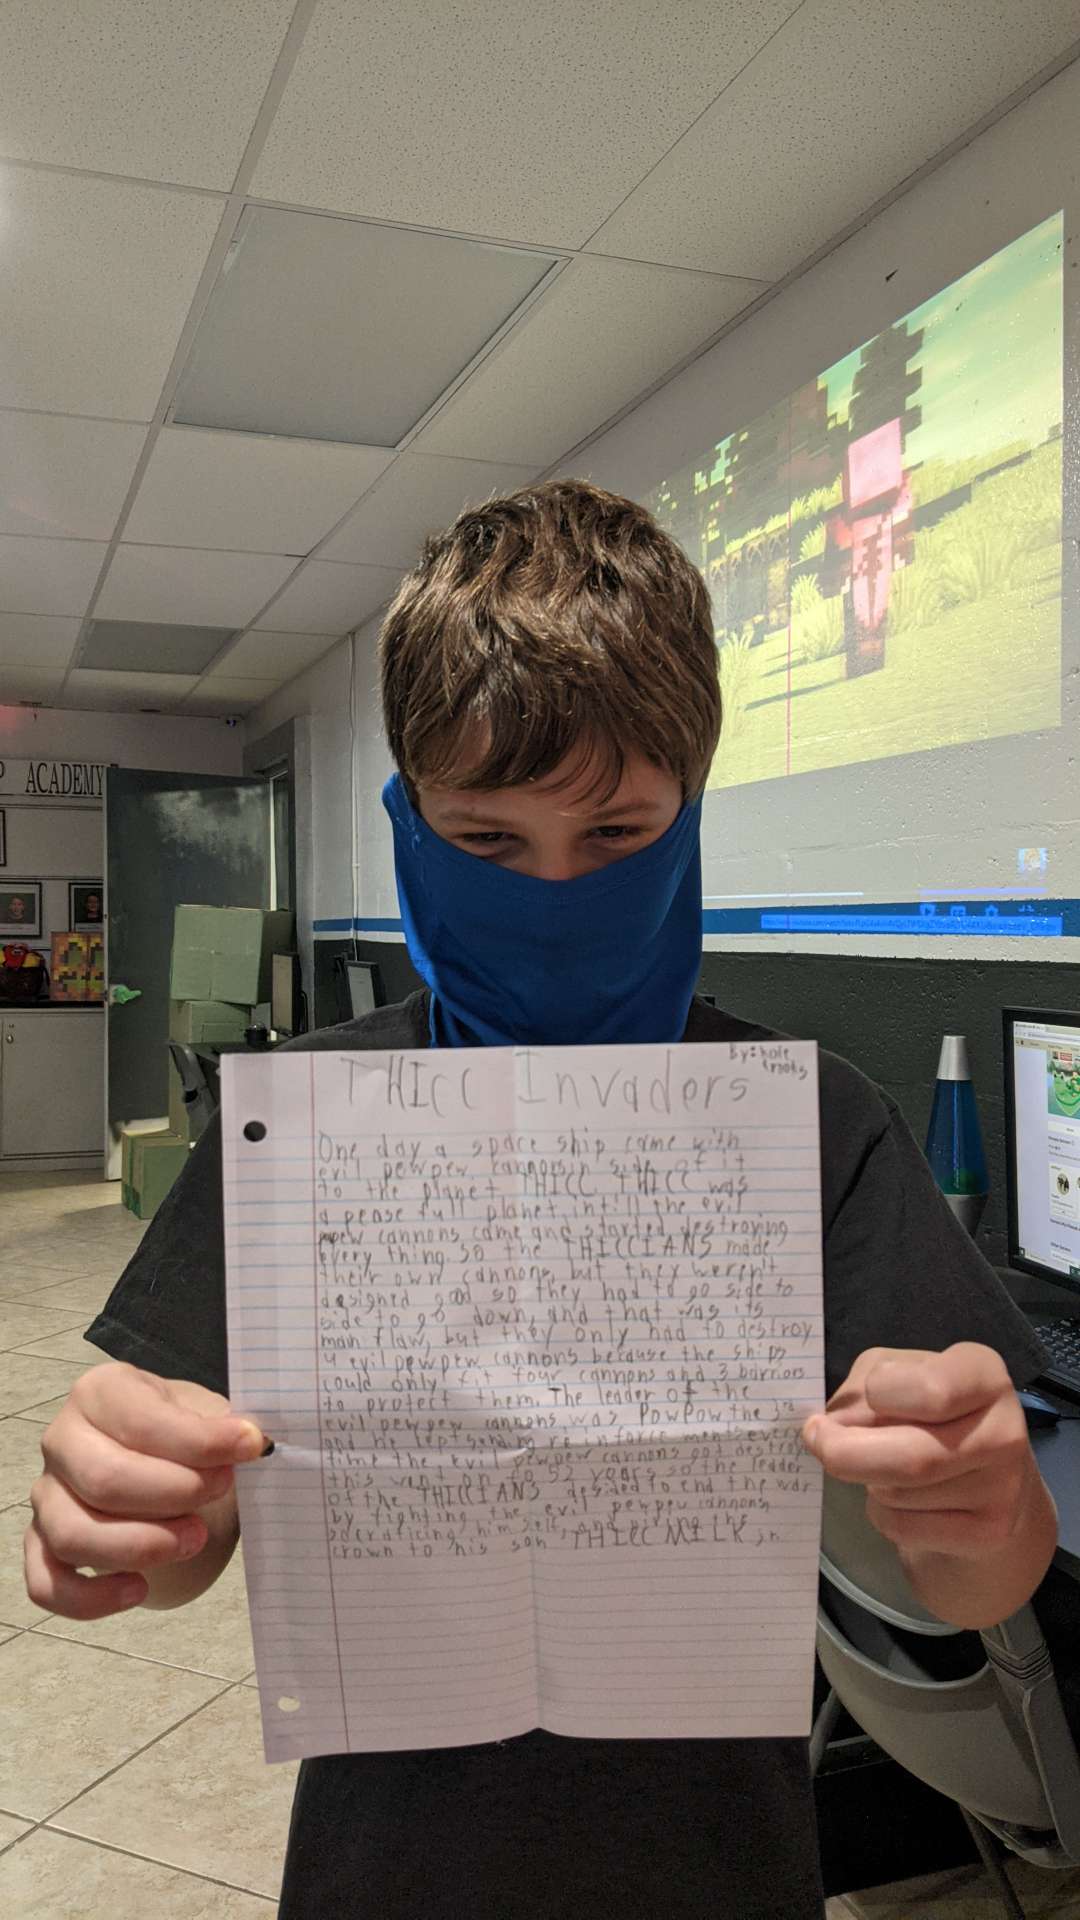 P ACADEMY
THICC Invaders
By: kole
krooks
One day a space ship came with
evil pewpew cannonsin side of it
to the planet THICC THICC was
a pense full planet intill the evil
pew cannons came and started destroying
every thing. so the THICCIANS made
their own cannons, but they weren't
designed good so they had to go side to
side to go down, and that was its
main flaw, but they only had to destroy
4 evil pewpew cannons because the ships
could only fit four cannons and 3 barriors
to protect them. The leader of the
evil pewpew cannons was PowPow the 3rd
and he kept sending re in force ments every
time the evil pewpew cannons got destroy
this want on fo 52 years so the leader
of the THICCIANS desided to end the war
by fighting the evil pewpew cannons,
sacraficing him self, and giving the
crown to his son THICC MILK jr.